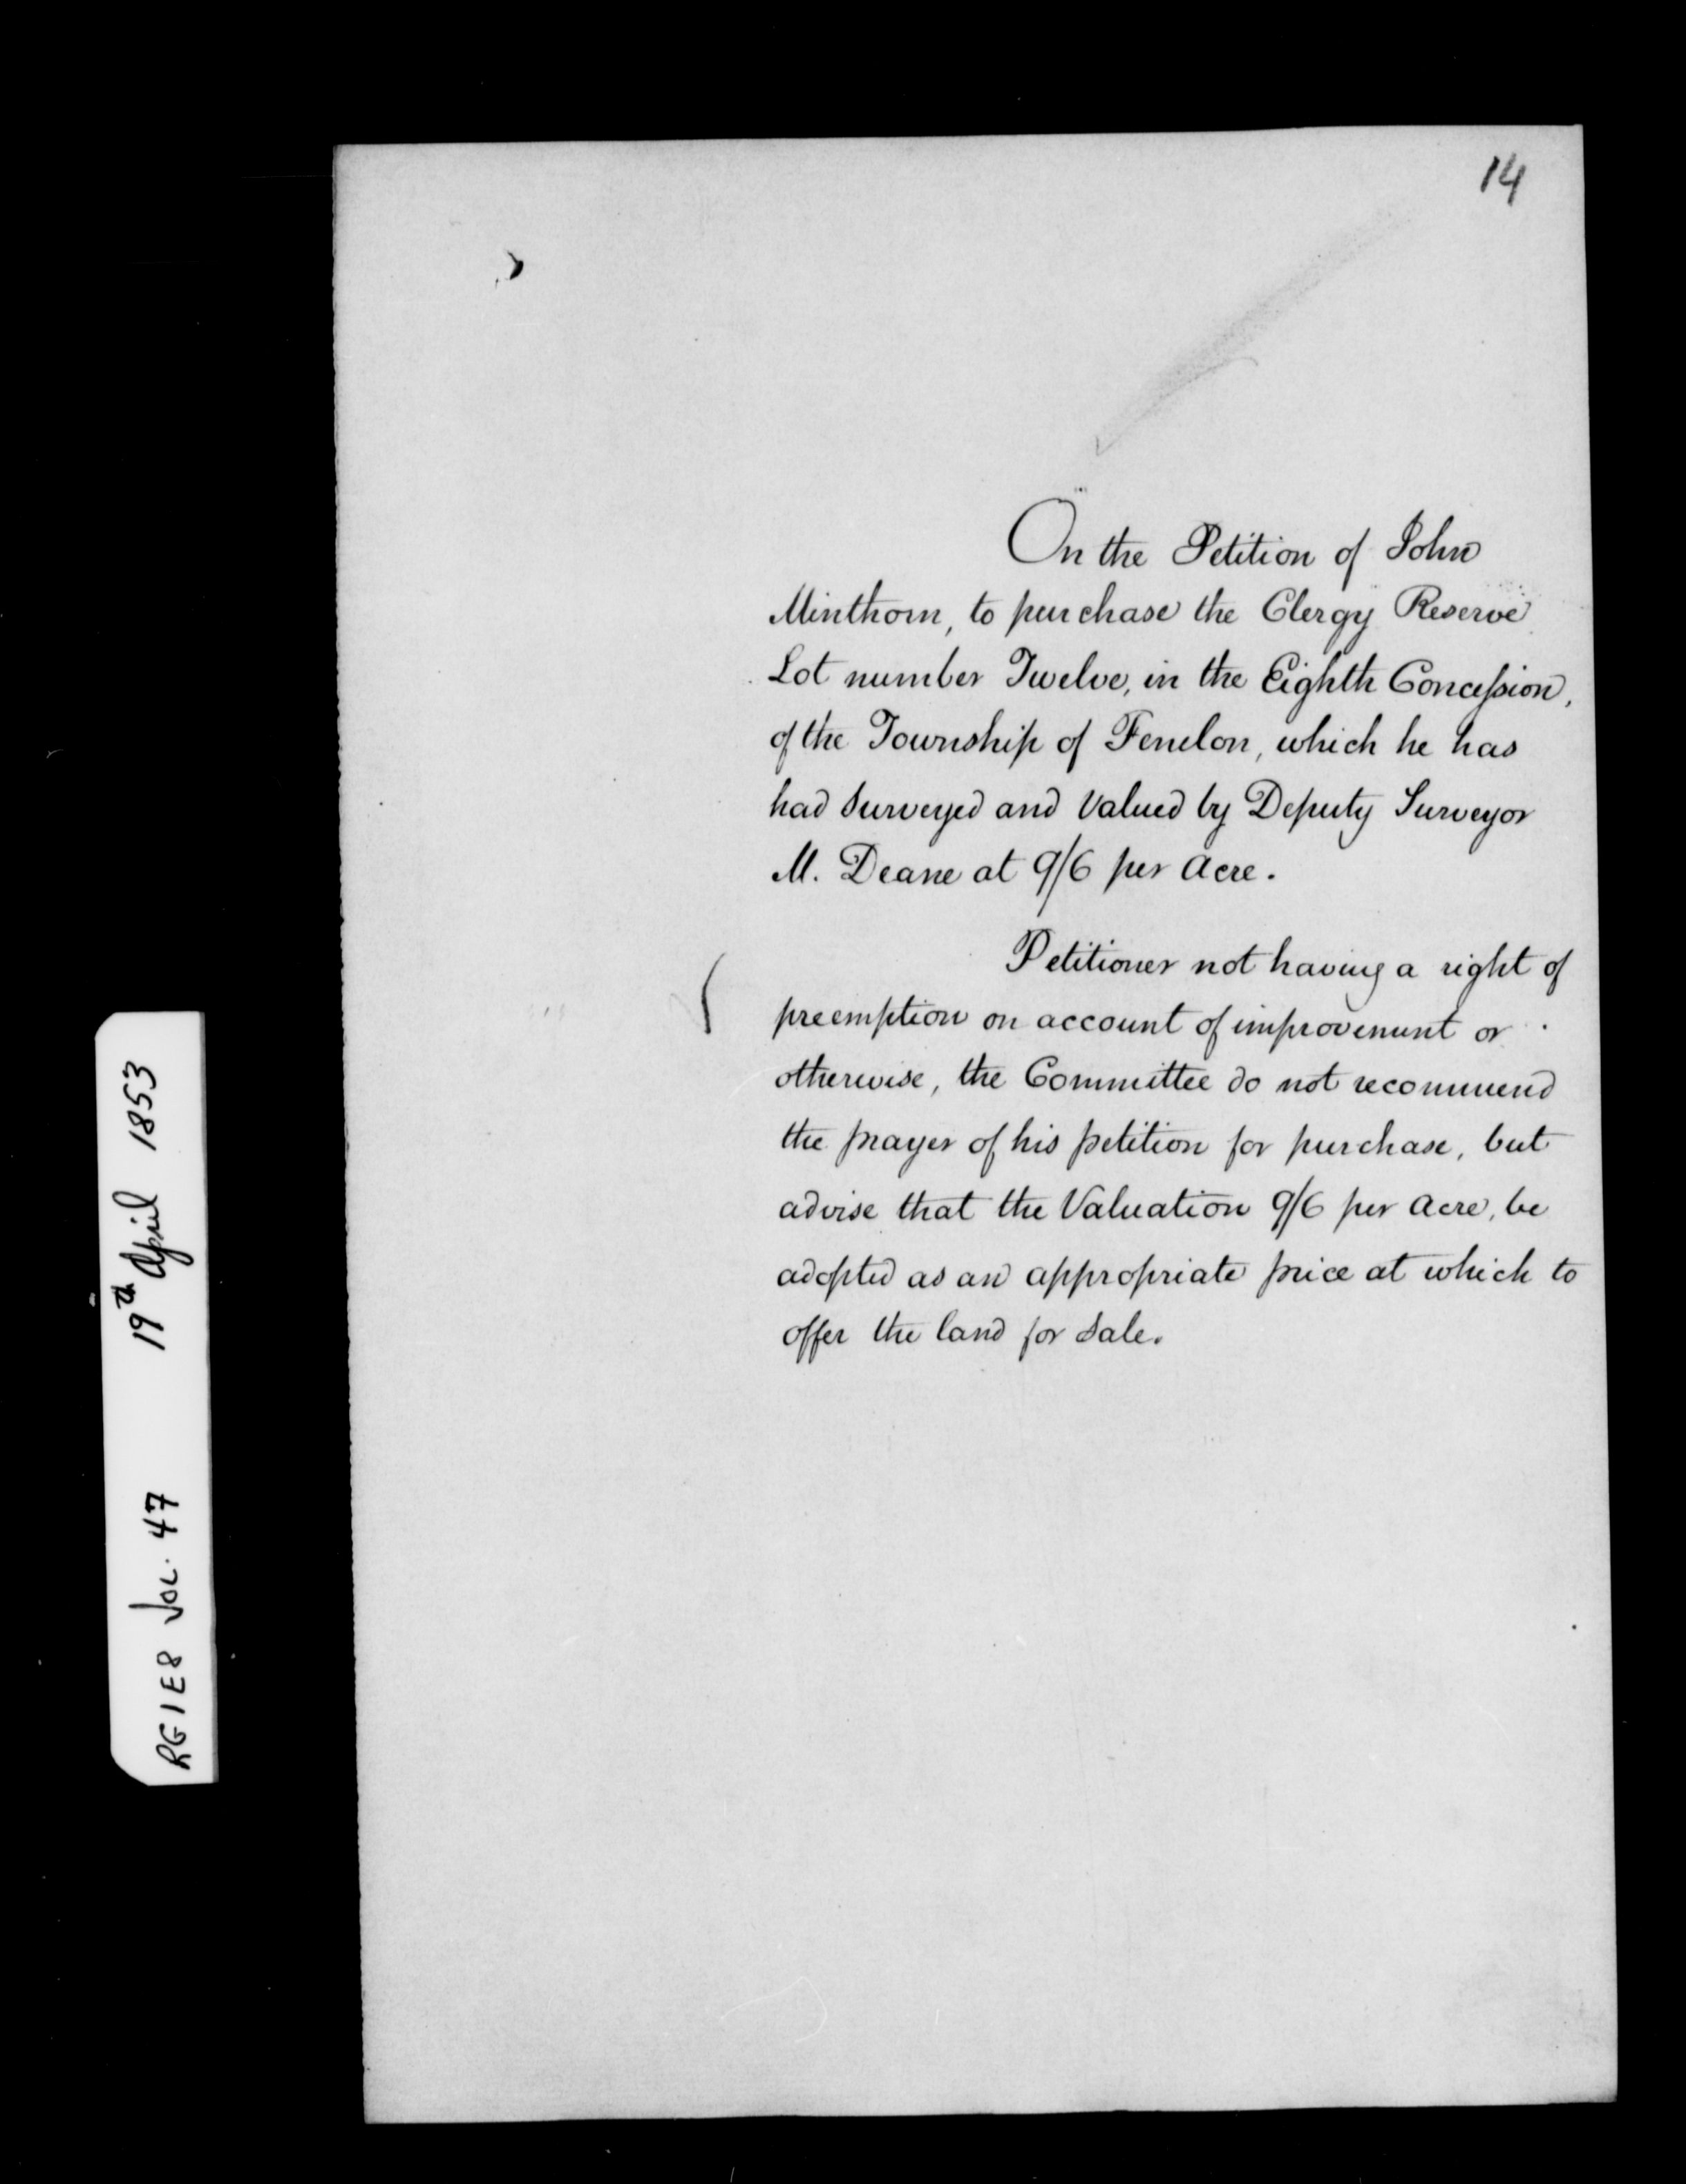 14
On the Petition of John
Minthorn, to purchase the Clergy Reserve
Lot number Twelve, in the Eighth Concession,
of the Township of Fenelon, which he has
had Surveyed and Valued by Deputy Surveyor
M. Deane at 9/6 per Acre.
Petitioner not having a right of
preemption on account of improvement or
otherwise, the Committee do not recommend
the prayer of his petition for purchase, but
advise that the Valuation 9/6 per Acre, be
adopted as an appropriate price at which to
offer the land for Sale.
RG1E8 VOL. 47 19th April 1853